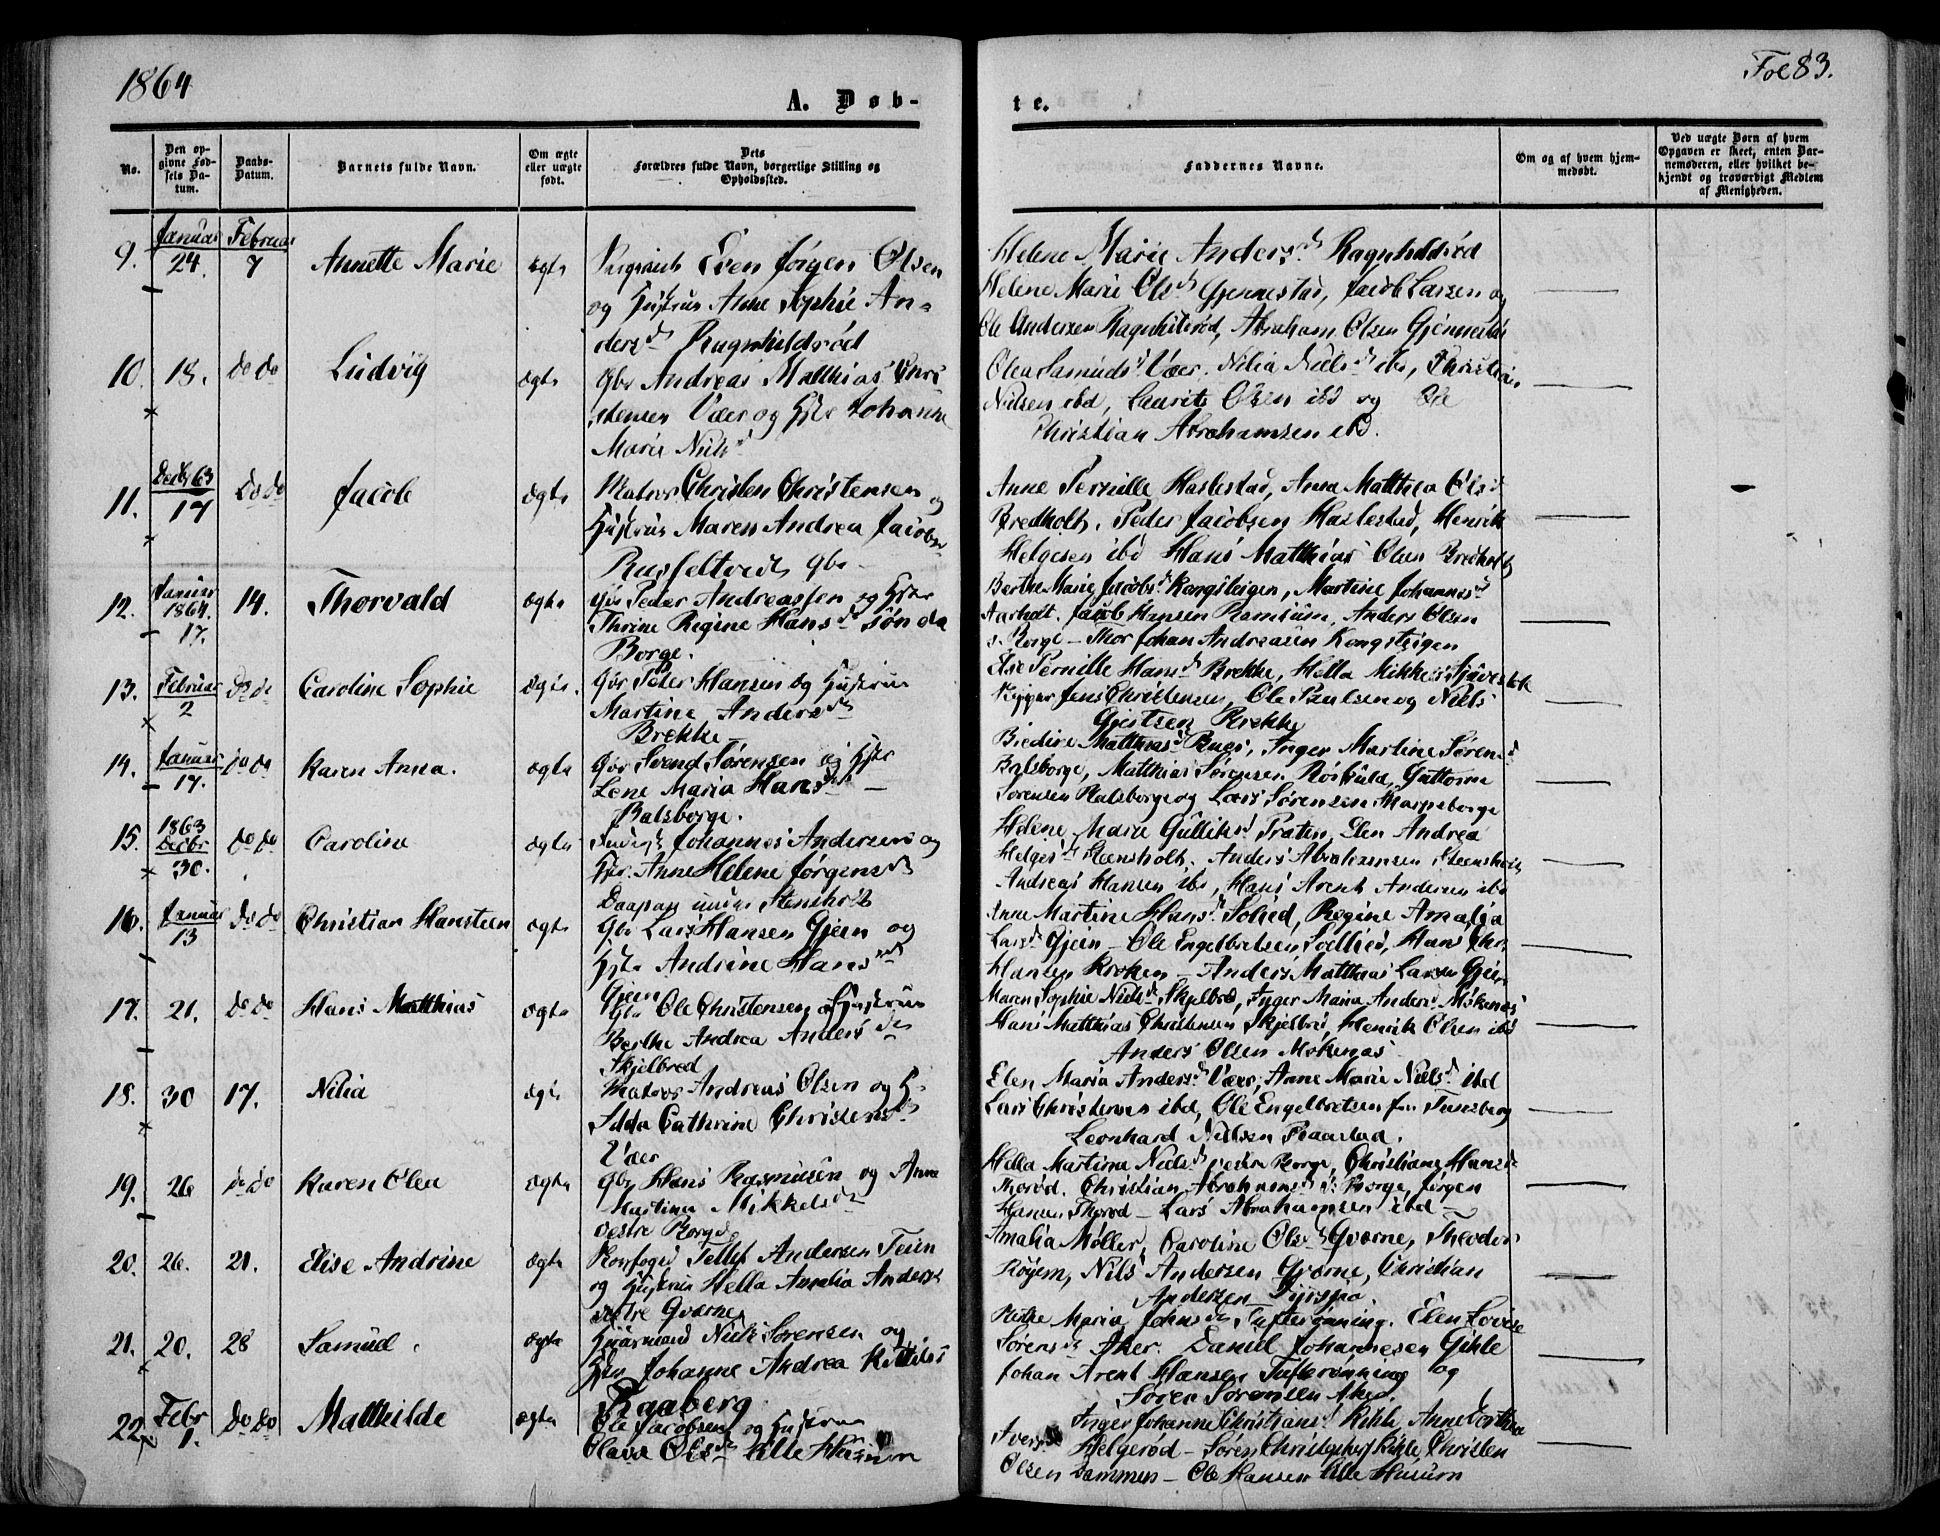 1864
Fol 83.
A. Døb-
te.
No.
Den op-
givne Fød-
sels Da-
tum.
Daabs-
Datum.
Barnets fulde Navn.
Om ægte
eller uægte
født.
Dets
Forældres fulde Navn, borgerlige Stilling og
Opholdssted.
Faddernes Navne.
Om og af hvem hjem-
medøbt.
Ved uægte Børn af hvem
Opgaven er skeet, enten Bar-
nemoderen, eller hvilket be-
kjendt og troværdigt Medlem
af Menigheden.
9. Januar 24. Februar 7 Annette Marie ægte
Even Jørgen Olsen
og Hustrue Anne Sophie An-
dersd Ragnhildrød
Helene Marie Andersd Ragnhildrød
Helene Marie Olsd Gjennestad, Jacob Larsen og
Ole Andersen Ragnhildrød, Abraham Olsen Gjennestad
10. 18. do do Ludvig ægte
Gbr Andreas Matthias Chri
stensen Væer og Hstr Johanne
Marie Nielsd
Olea Samuelsd Væer. Nilia Nielsd ibd, Christian
Nilsen ibd, Laurits Olsen ibd og
Christian Abrahamsen ibd.
11. Decbr 63 17 do do Jacob ægte
Matros Christen Christensen og
Hustrue Maren Andrea Jacobsd
Gbr
Anne Pernille Haslestad, Anna Matthea Olsd
Bredholt. Peder Jacobsen Haslestad, Henrik
Helgesen ibd Hans Matthias Olsen Bredholt
12. Januar 1864. 17. 14. Thorvald ægte
Gbr Peder Andreassen og Hstr
Thrine Regine Hansd Søndre
Borge.
Berthe Marie Jacobsd Kongsteigen, Martine Johannesd
Aarholt. Jacob Hansen Ramsum, Anders Olsen
s. Borge – Thor Johan Andreasen Kongsteigen
13. Februar 2 do do Caroline Sophie ægte.
Gbr Peter Hansen og Hustrue
Martine Andersd
Brekke
Else Pernille Hansd Brekke, Hella Mikkelsd
Jens Christensen, Ole Paulsen og Niels
Gjertsen Brekke
14. Januar 17. do do Karen Anna. ægte
Gbr Svend Sørensen og Hstr
Lene Maria Hansd
Balsborge.
Matthiasd Inger Martine Sørensd
Balsborge, Matthias Sørensen Guttorm
Sørensen Balsborge og Lars Sørensen
15. 1863 Decbr 30. do do Caroline ægte
Johannes Andersen og
Hstr. Anne Helene Jørgensd
under Stensholt
Helene Marie Gulliksd Præsten, Elen Andrea
Helgesd Steensholt. Anders Abrahamsen Steensholt
Andreas Hansen ibd, Hans Arent Andersen ibd
16. Januar 13 do do Christian Hansteen ægte
Gbr Lars Hansen Gjein og
Hstr Andrine Hansd
Gjein
Anne Martine Hansd Solied, Regine Amalia
Larsd Gjein – Ole Engelbretsen Sollied, Hans Chr.
Hansen Kroken – Anders Matthias Larsen Gjein
17. 21. do do Hans Matthias ægte
Gbr Ole Christensen og Hustrue
Berthe Andrea Andersd
Skjelbred
Maren Sophie Nielsd Skjelbred, Inger Maria Andersd Møkenas
Hans Matthias Christensen Skjelbred, Henrik Olsen ibd
Anders Olsen Møkenas
18. 30 17. Nilia ægte
Matros Andreas Olsen og H.
Idda Cathrine Christensd
Væer
Elen Maria Andersd Væer, Anne Marie Nielsd ibd
Lars Christensen ibd, Ole Engelbretsen fra Tunsberg
Leonhard Nielsen
19. 26 do do Karen Olea ægte
Gbr Hans Rasmusen og Anne
Martina Mikkelsd
vestre Borge
Hella Martina Nielsd vestre Borge, Christiane Hansd
Thorød. Christian Abrahamsen v: Borge, Jørgen
Hansen Thorød – Lars Abrahamsen ibd
20. 26. 21. Elise Andrine ægte
Tellef Andersen Teien
og Hustrue Hella Amalia Andersd
vestre Qværne
Amalia Møller, Caroline Olsd Qværne, Theodor
Røyem, Nils Andersen Qværne, Christian
Andersen
21. 20. 28 Samuel ægte
Niels Sørensen og
Hstr Johanne Andrea
Raaberg
Maria Johnsd Tufterønning. Elen Lovise
Sørensd Aker. Daniel Johannesen Gihle
Johan Arent Hansen Tufterønning og
Søren Sørensen Aker
22 Febr 1. do do Mathilde ægte
Ole Jacobsen og Hustrue
Olava Olsd Lille Husum
Inger Johanne Christiansd Kihle, Anne Dorthea
Helgerød – Søren Christophers Kihle, Christen
Olsen Dammen – Ole Hansen Lille Husum